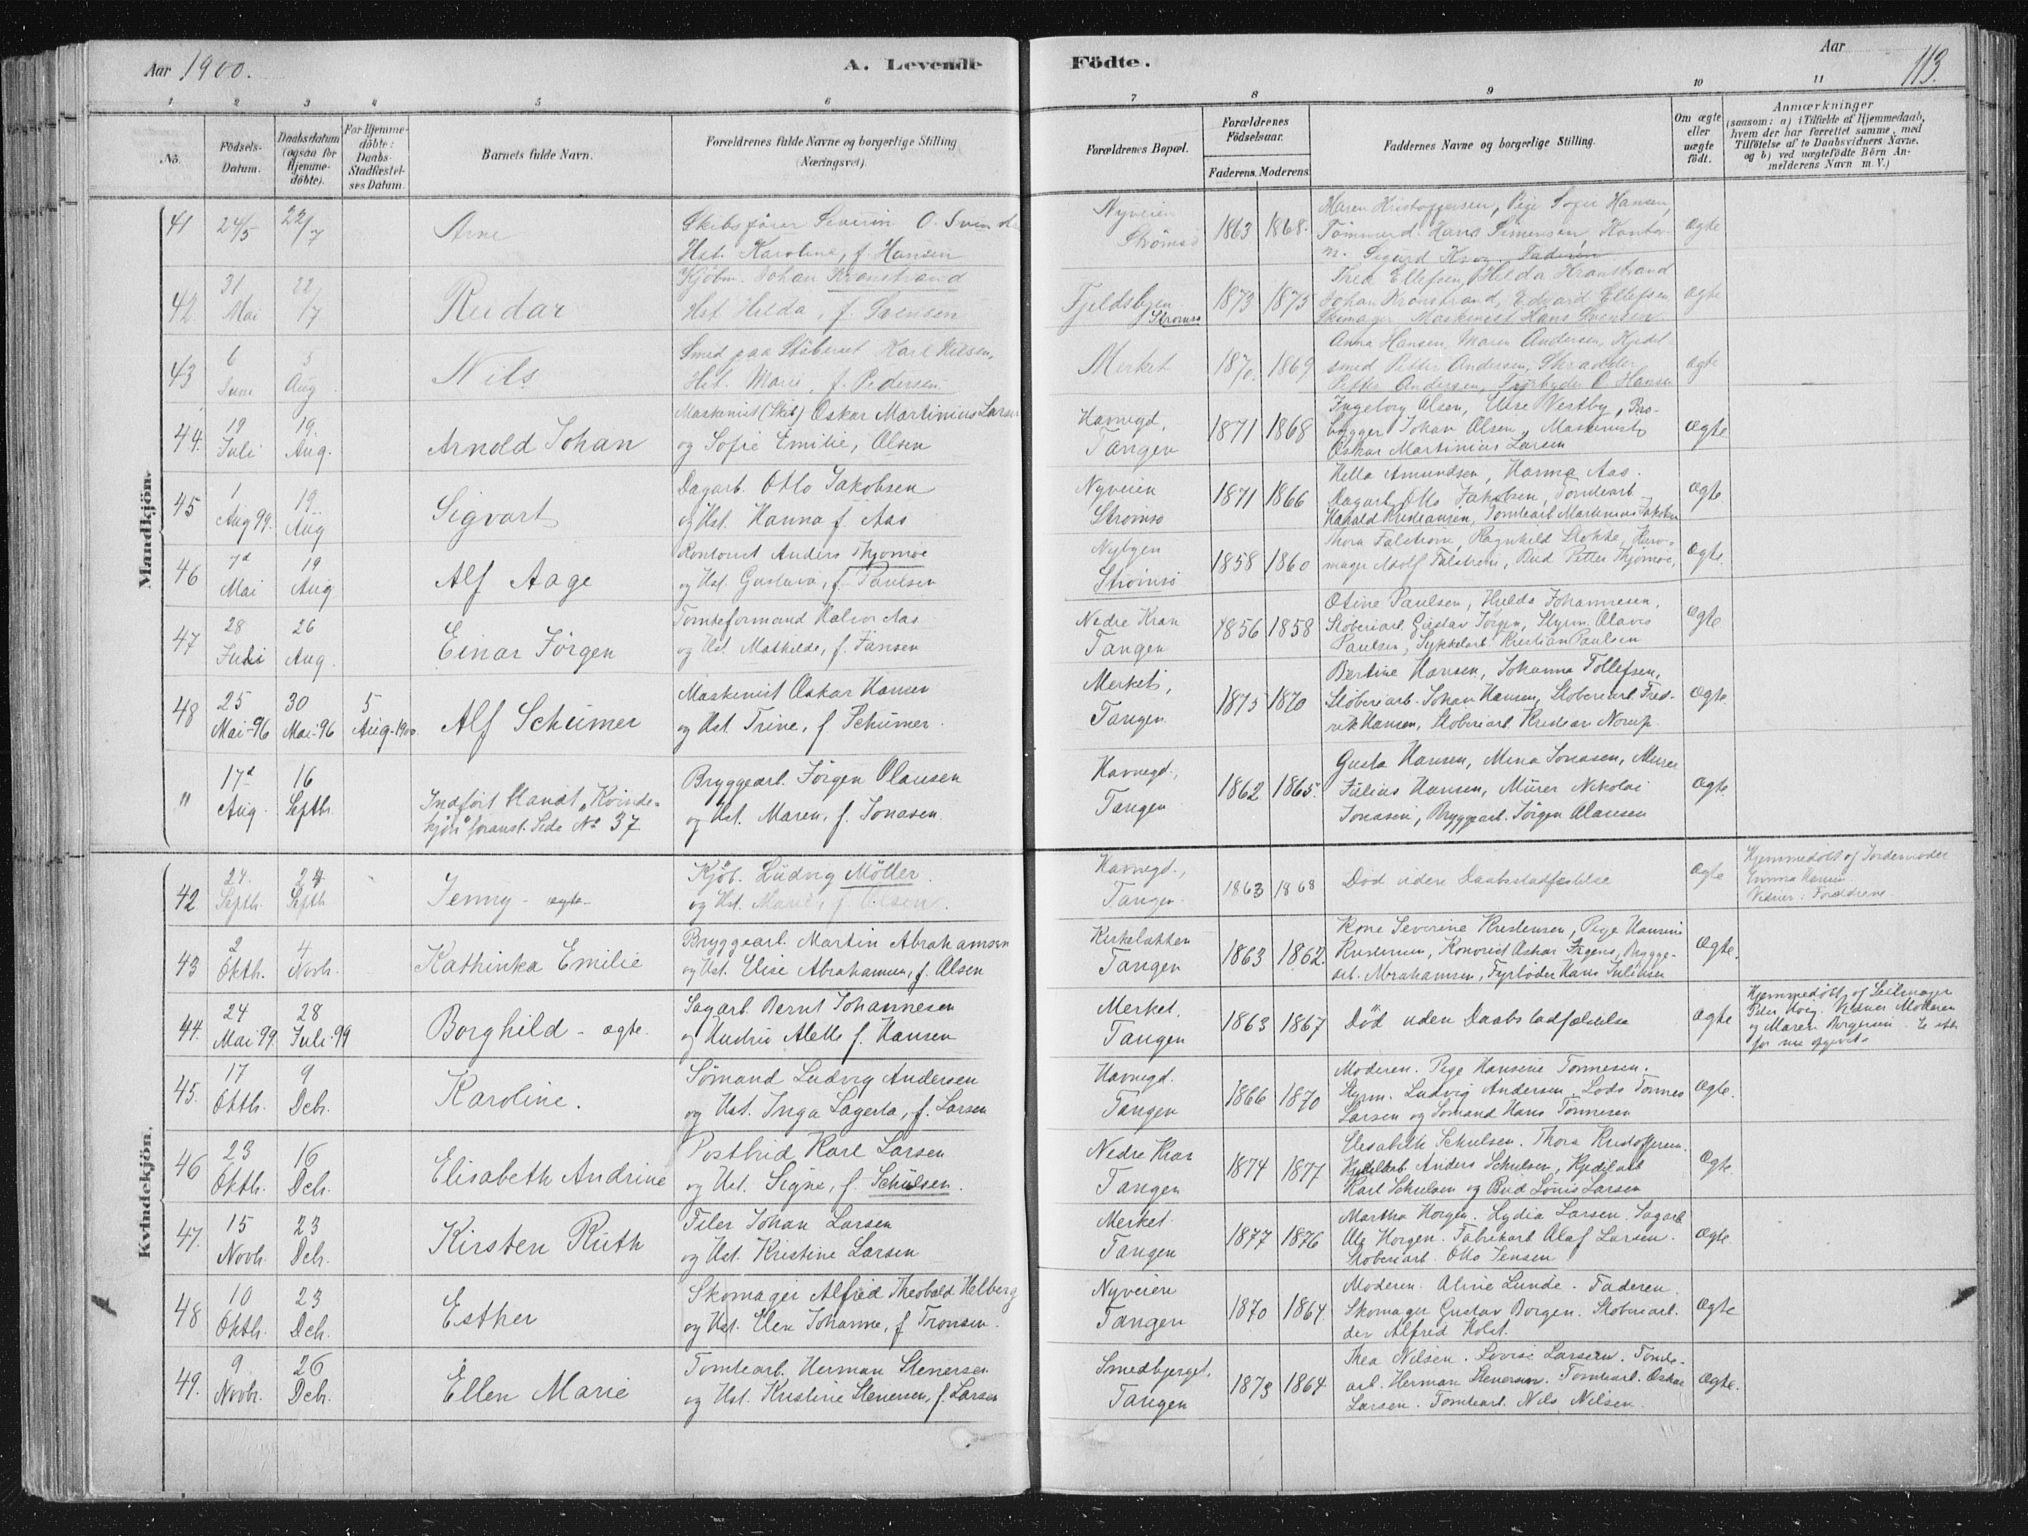 Aar 1900.
A. Levende Födte.
Aar
113.
1 2 3 4 5 6 7 8 9 10 11
No.
Födsels-Datum.
Daabsdatum (ogsaa for Hjemme-döbte).
For Hjemme-döbte: Daabs-Stadfæstel-ses Datum.
Barnets fulde Navn.
Forældrenes fulde Navne og borgerlige Stilling (Næringsvei).
Forældrenes Bopæl.
Forældrenes Födselsaar.
Faderens. Moderens.
Faddernes Navne og borgerlige Stilling.
Om ægte eller uægte födt.
Anmærkninger
(saasom: a) i Tilfælde af Hjemmedaab, hvem der har forrettet samme, med Tilföielse af to Daabsvidners Navne, og b) ved uægtefödte Börn An-melderens Navn m. V.)
Mandkjön.
41 24/5 22/7 Arne
Skibsfører Severin O.
Hst. Karoline, f. Hansen
Nyveien
Strømsø
1863 1868.
Maren Kristoffersen, Pige Sofie Hansen,
Tømmerd. Hans Simensen Kontor-
m. Sigurd Krog, Faderen
Ægte
42 31 Mai 22/7 Reidar
Kjöbm. Johan Kronstrand
Hst. Hilda, f. Svensen
Fjeldsbyen
Strømsø
1873 1875
Thea Ellefsen, Hilda Kronstrand
Johan Kronstrand, Edvard Ellefsen
Skomager Maskinist Hans Svensen
Ægte
43 6 Juni 5 Aug. Nils
Smed paa Støberiet Karl Nilsen,
Hst. Marie, f. Pedersen
Merket
1870. 1869
Anna Hansen, Maren Andersen, Kjedel
smed Petter Andersen,
Petter Andersen, O. Hansen
Ægte
44. 19 Juli 19 Aug. Arnold Johan
Maskinist (Skib) Oskar Martinius Larsen
og Sofie Emilie, Olsen
Havnegd,
Tangen
1871 1868
Ingeborg Olsen, Else Vestby, Bro-
bygger Johan Olsen, Maskinist
Oskar Martinius Larsen
Ægte
45 1 Aug 99. 19 Aug Sigvart
Dagarb. Otto Jakobsen
og Hst. Hanna f. Aas
Nyveien
Strømsø
1871 1866
Hella Amundsen, Hanna Aas.
Dagarb. Otto Jakobsen, Tomtearb.
Harald Kristiansen, Tomtearb Martinius Jakobsen
Ægte
46 7d Mai 19 Aug Alf Aage
Kontorist Anders Thjømøe
og Hst. Gustava, f. Paulsen
Nybyen
Strømsø
1858 1860
Thora Falstrøm, Ragnhild Stokke,
mager Adolf Falstrøm, Bud Petter Thjømøe,
Ægte.
47 28 Juli 26 Aug. Einar Jörgen
Tomteformand Halvor Aas
og Hst. Mathilde, f. Jansen
Nedre Kran
Tangen
1856 1858
Otine Paulsen, Hulda Johannesen,
Støberiarb. Gustav Jørgen, Styrm. Olavis
Paulsen, Sykkelarb. Kristian Paulsen
Ægte
48 25 Mai-96 30 Mai-96 5 Aug-1900. Alf Schümer
Maskinist Oskar Hansen
og Hst. Trine, f. Schümer.
Merket,
Tangen
1875 1870
Bertine Hansen, Johanna Tollefsen,
Støberiarb. Johan Hansen, Støberiarb. Fred-
rik Hansen, Støberiarb. Kristian Norup
Ægte
" 17d Aug. 16 Septbr. Indført blandt „Kvinde-
kjön" foranst. Side No 37
Bryggearb. Jörgen Olausen
og Hst. Maren, f. Jonasen.
Havnegd.,
Tangen
1862 1865.
Gusta Hansen, Mina Jonasen, Murer
Julius Hansen, Mürer Nikolai
Jonasen, Bryggearb. Jörgen Olausen
Ægte.
Kvindekjön.
42 24. Septb. 24 Septb Jenny - ægte
Kjöb. Ludvig Möller.
og Hst. Marie, f. Olsen.
Havnegd.,
Tangen
1863 1868
Död uden Daabsstadfæstelse
Ægte
Hjemmedøbt af Jordemoder
Emma Hansen
Vidner: Forældrene
43 2 Oktb. 4 Novb. Kathinka Emilie
Bryggearb. Martin Abrahamsen
og Hst. Elise Abrahamsen, f. Olsen
Kirkeløkken
Tangen
1863 1862.
Kone Severine Kristensen, Pige Hansine
Kristensen, Oskar, Brygge-
arb. Abrahamsen, Fyrbøder Hans
Ægte.
44. 24 Mai 99. 28 Juli 99 Borghild - ægte.
Sagarb. Bernt Johannesen
og Hustru Alette f. Hansen
Merket
Tangen
1863 1867
Död uden Daabsstadfæstelse
Ægte
Hjemmedøbt af Seilmager
Peter Vidner Moderen
og Maren Borgersen
før nu opgivet.
45. 17 Oktb. 9 Deb. Karoline.
Sømand Ludvig Andersen
og Hst. Inga Lagerta, f. Larsen
Havnegd.
Tangen
1866 1870
Moderen. Pige Hansine Tønnesen.
Styrm. Ludvig Andersen. Lods Tønnes
Larsen og Sömand Hans Tönnesen
Ægte.
46 23 Oktb. 16 Deb. Elisabeth Andrine
Postbud Karl Larsen
og Hst. Signe, f. Schülsen.
Nedre Kran
Tangen
1874 1877
Elisabeth Schulsen. Thora Kristoffersen.
Anders Schulsen, Kjedelarb
Karl Schulsen og Bud Lönis Larsen
Ægte.
47. 15 Novb. 23 Deb. Kirsten Ruth
Filer Johan Larsen
og Hst. Kristine Larsen
Merket
Tangen
1877 1876
Martha Horgen. Lydia Larsen. Sagarb
Ole Horgen. Fabrikarb Olaf Larsen.
Støberiarb. Otto Jensen
Ægte.
48 10 Oktb. 23 Deb. Esther
Skomager Alfred Theobald Helberg
og Hst. Elen Johanne, f. Tronsen.
Nyveien
Tangen
1870 1864
Moderen. Aline Lunde. Faderen.
Skomager Gustav Borgen. Støberiarbei-
der Alfred Holst.
Ægte
49. 9 Novbr. 26 Deb. Ellen Marie
Tomtearb. Herman Stenersen
og Hst. Kristine Stenersen, f. Larsen
Smedbjerget,
Tangen
1873 1864
Thea Nilsen. Lovise Larsen. Tomte-
arb. Herman Stenersen. Tomtearb. Oskar
Larsen. Tomtearb. Nils Nilsen.
Ægte.